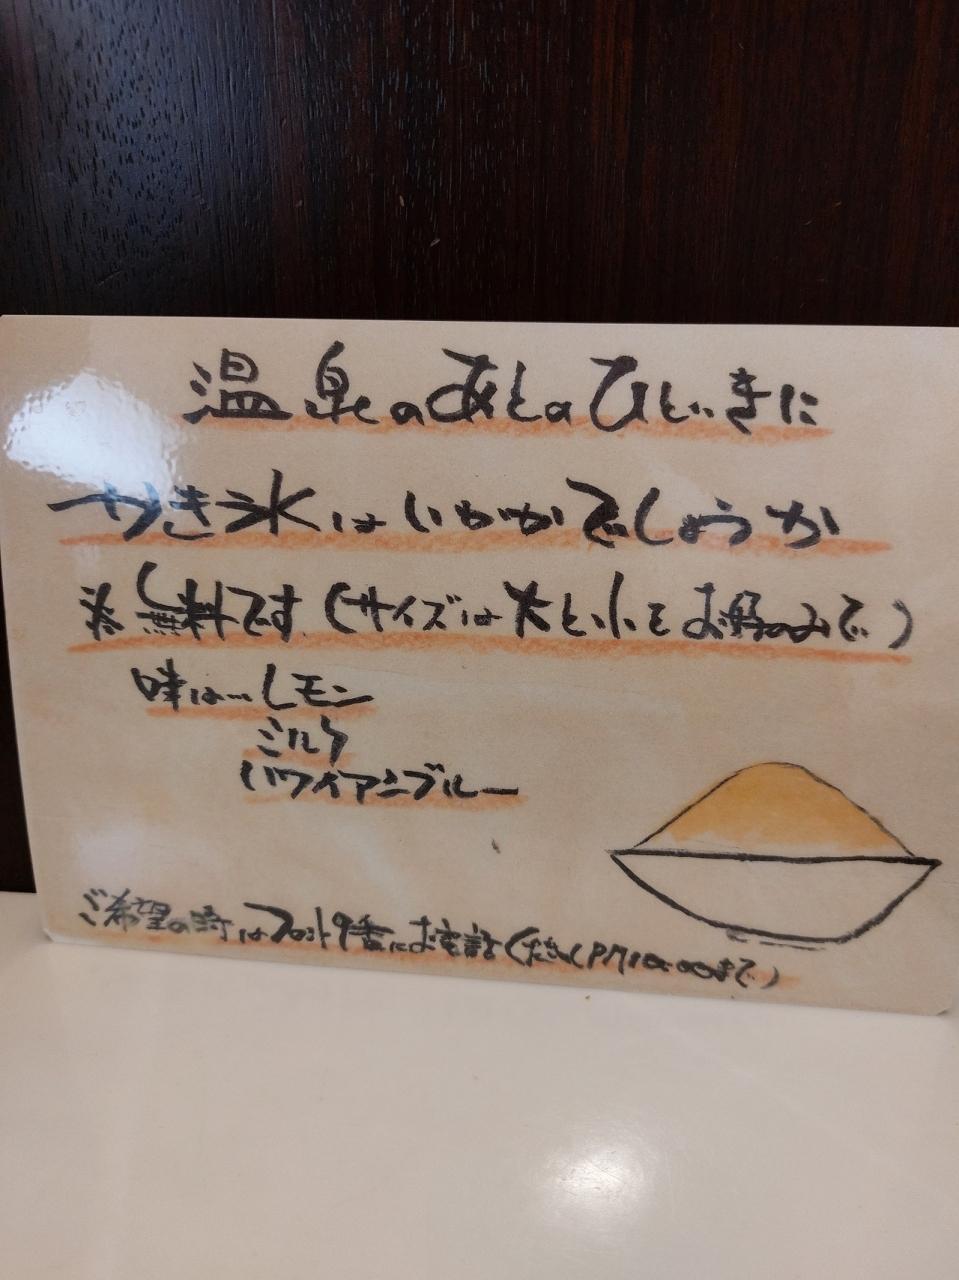 温泉のあとのひとときに
かき氷はいかがでしょうか
※無料です(サイズは大と小をお好みで)
味は…レモン
ミルク
ハワイアンブルー
ご希望の時はフロント9番にお電話ください(PM10:00まで)